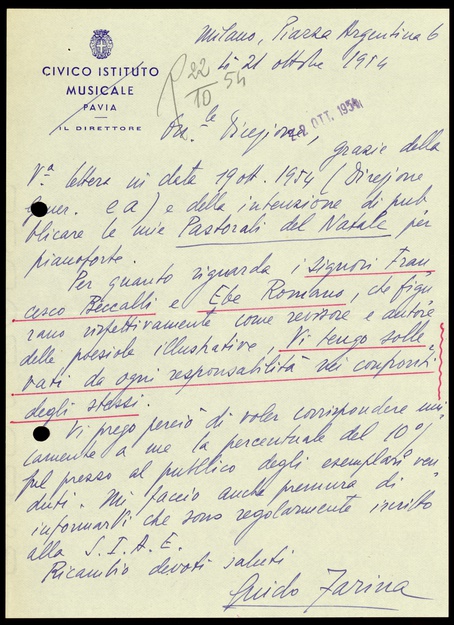 CIVICO ISTITUTO
MUSICALE
PAVIA
IL DIRETTORE
Milano, Piazza Argentina 6
li 21 ottobre 1954
22
10 54
22 OTT. 1954
On.le Direzione,
grazie della
Va lettera in data 19 ott. 1954 (Direzione
Gener. e a) e della intenzione di pub
blicare le mie Pastorali del Natale per
pianoforte.
Per quanto riguarda i signori Fran
cesco Beccalli e Ebe Romano, che figu
rano rispettivamente come revisore e autore
delle poesiole illustrative, Vi tengo solle
vati da ogni responsabilità nei confronti
degli stessi.
Vi prego perciò di voler corrispondere uni
camente a me la percentuale del 10%
sul prezzo al pubblico degli esemplari ven
duti. Mi faccio anche premura di
informarVi che sono regolarmente iscritto
alla S.I.A.E.
Ricambio devoti saluti
Guido Farina